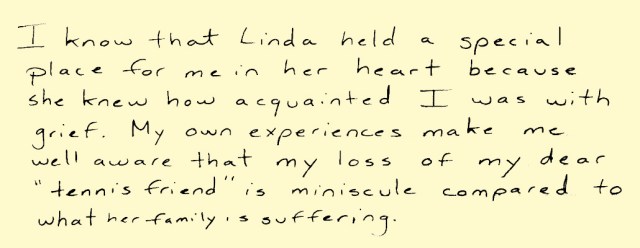 I know that Linda held a special
place for me in her heart because
she knew how acquainted I was with
grief. My own experiences make me
well aware that my loss of my dear
"tennis friend" is miniscule compared to
what her family is suffering.